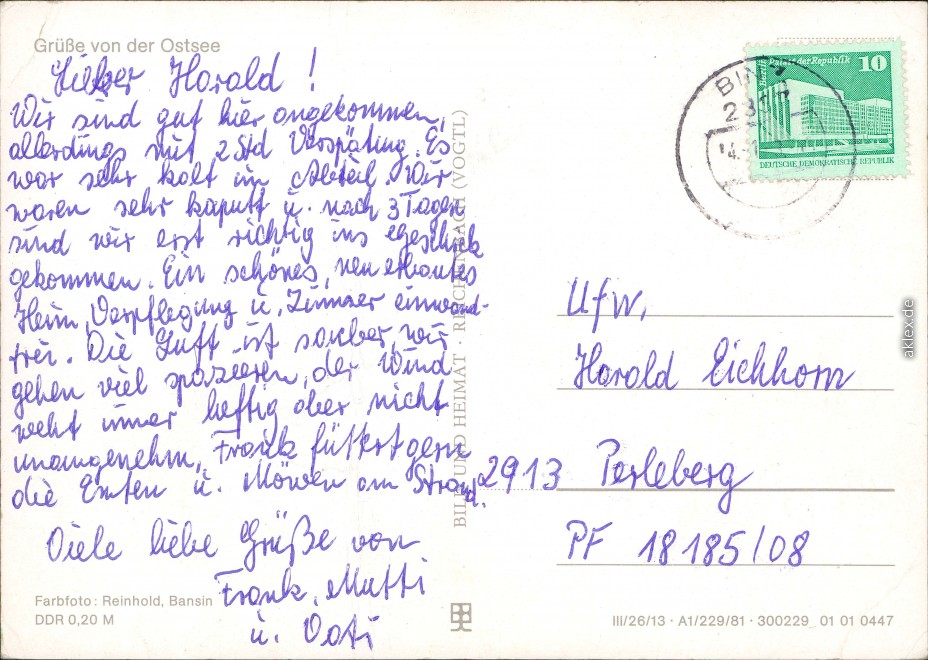 Grüße von der Ostsee
Lieber Harald!
Wir sind gut hier angekommen,
allerdings mit 2 Std Verspätung. Es
war sehr kalt im Abteil. Wir
waren sehr kaputt u. nach 3 Tagen
sind wir erst richtig ins Geschick
gekommen. Ein schönes, neu erbautes
Heim, Verpflegung u. Zimmer einwand-
frei. Die Luft ist sauber, wir
gehen viel spazieren, der Wind
weht immer heftig aber nicht
unangenehm, Frank füttert gern
die Enten u. Möwen am Strand.
Viele liebe Grüße von
Frank, Mutti
u. Vati
Farbfoto: Reinhold, Bansin
DDR 0,20 M
BILD UND HEIMAT · REICHENBACH (VOGTL)
Berlin Palast der Republik 10
DEUTSCHE DEMOKRATISCHE REPUBLIK
Ufw.
Harald Eichhorn
2913 Perleberg
PF 18 185/08
III/26/13 · A1/229/81 · 300229 01 01 0447
aklex.de